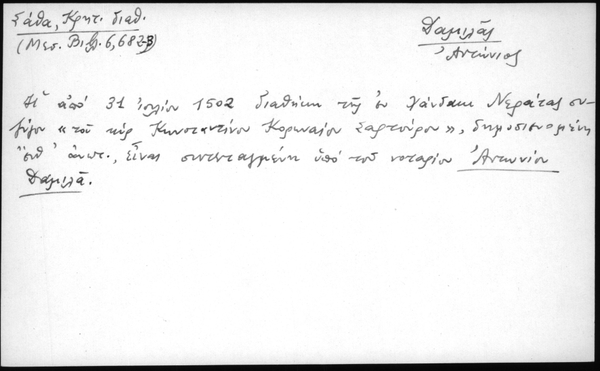 Σάθα, Κρητ. διαθ.
(Μεσ. Βιβλ. 6, 682-3)
Δαμιλᾶς
Ἀντώνιος
Ἡ ἀπό 31 ἰουλίου 1502 διαθήκη τῆς ἐν Χάνδακι Νεράτας συ-
ζύγου «τοῦ κύρ Κωνσταντίνου Κορωναίου Σαρτούρου», δημοσιευομένη
ἔνθ' ἀνωτ., εἶναι συντεταγμένη ὑπό τοῦ νοταρίου Ἀντωνίου
Δαμιλᾶ.